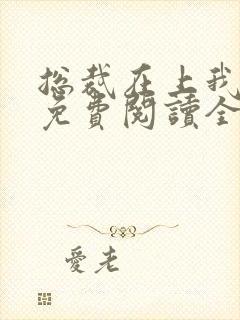 总裁在上我
免費閱讀全
愛老